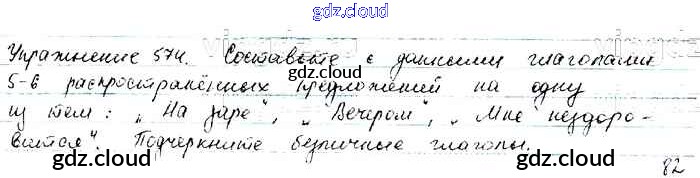 gdz.cloud
Упражнение 574. Составьте с данными глаголами
5-6 распространённых предложений на одну
из тем: „На заре", „Вечером", „Мне нездоро-
вится". Подчеркните безличные глаголы.
gdz.cloud gdz.cloud
gdz.cloud gdz.cloud
82